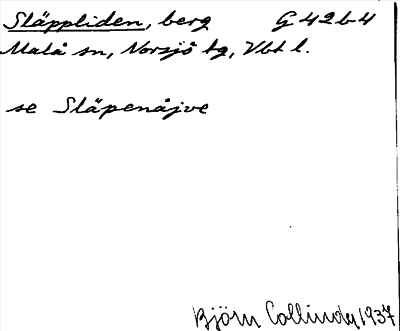 Släppliden, berg G 42 b 4
Malå sn, Norsjö tg, Vbt l.
se Släpenåjve
Björn Collinder 1937